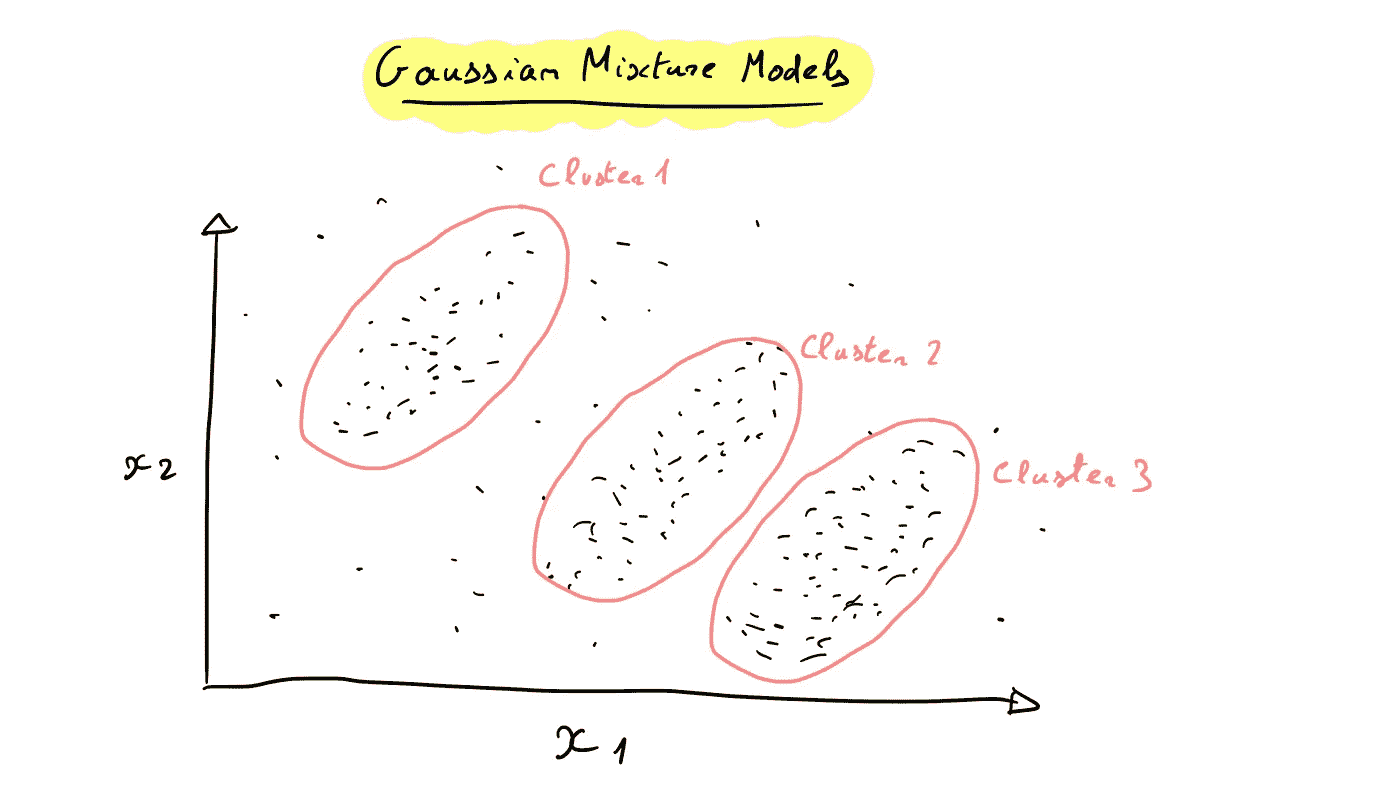 Gaussian Mixture Models
Cluster 1
Cluster 2
x2
Cluster 3
x1